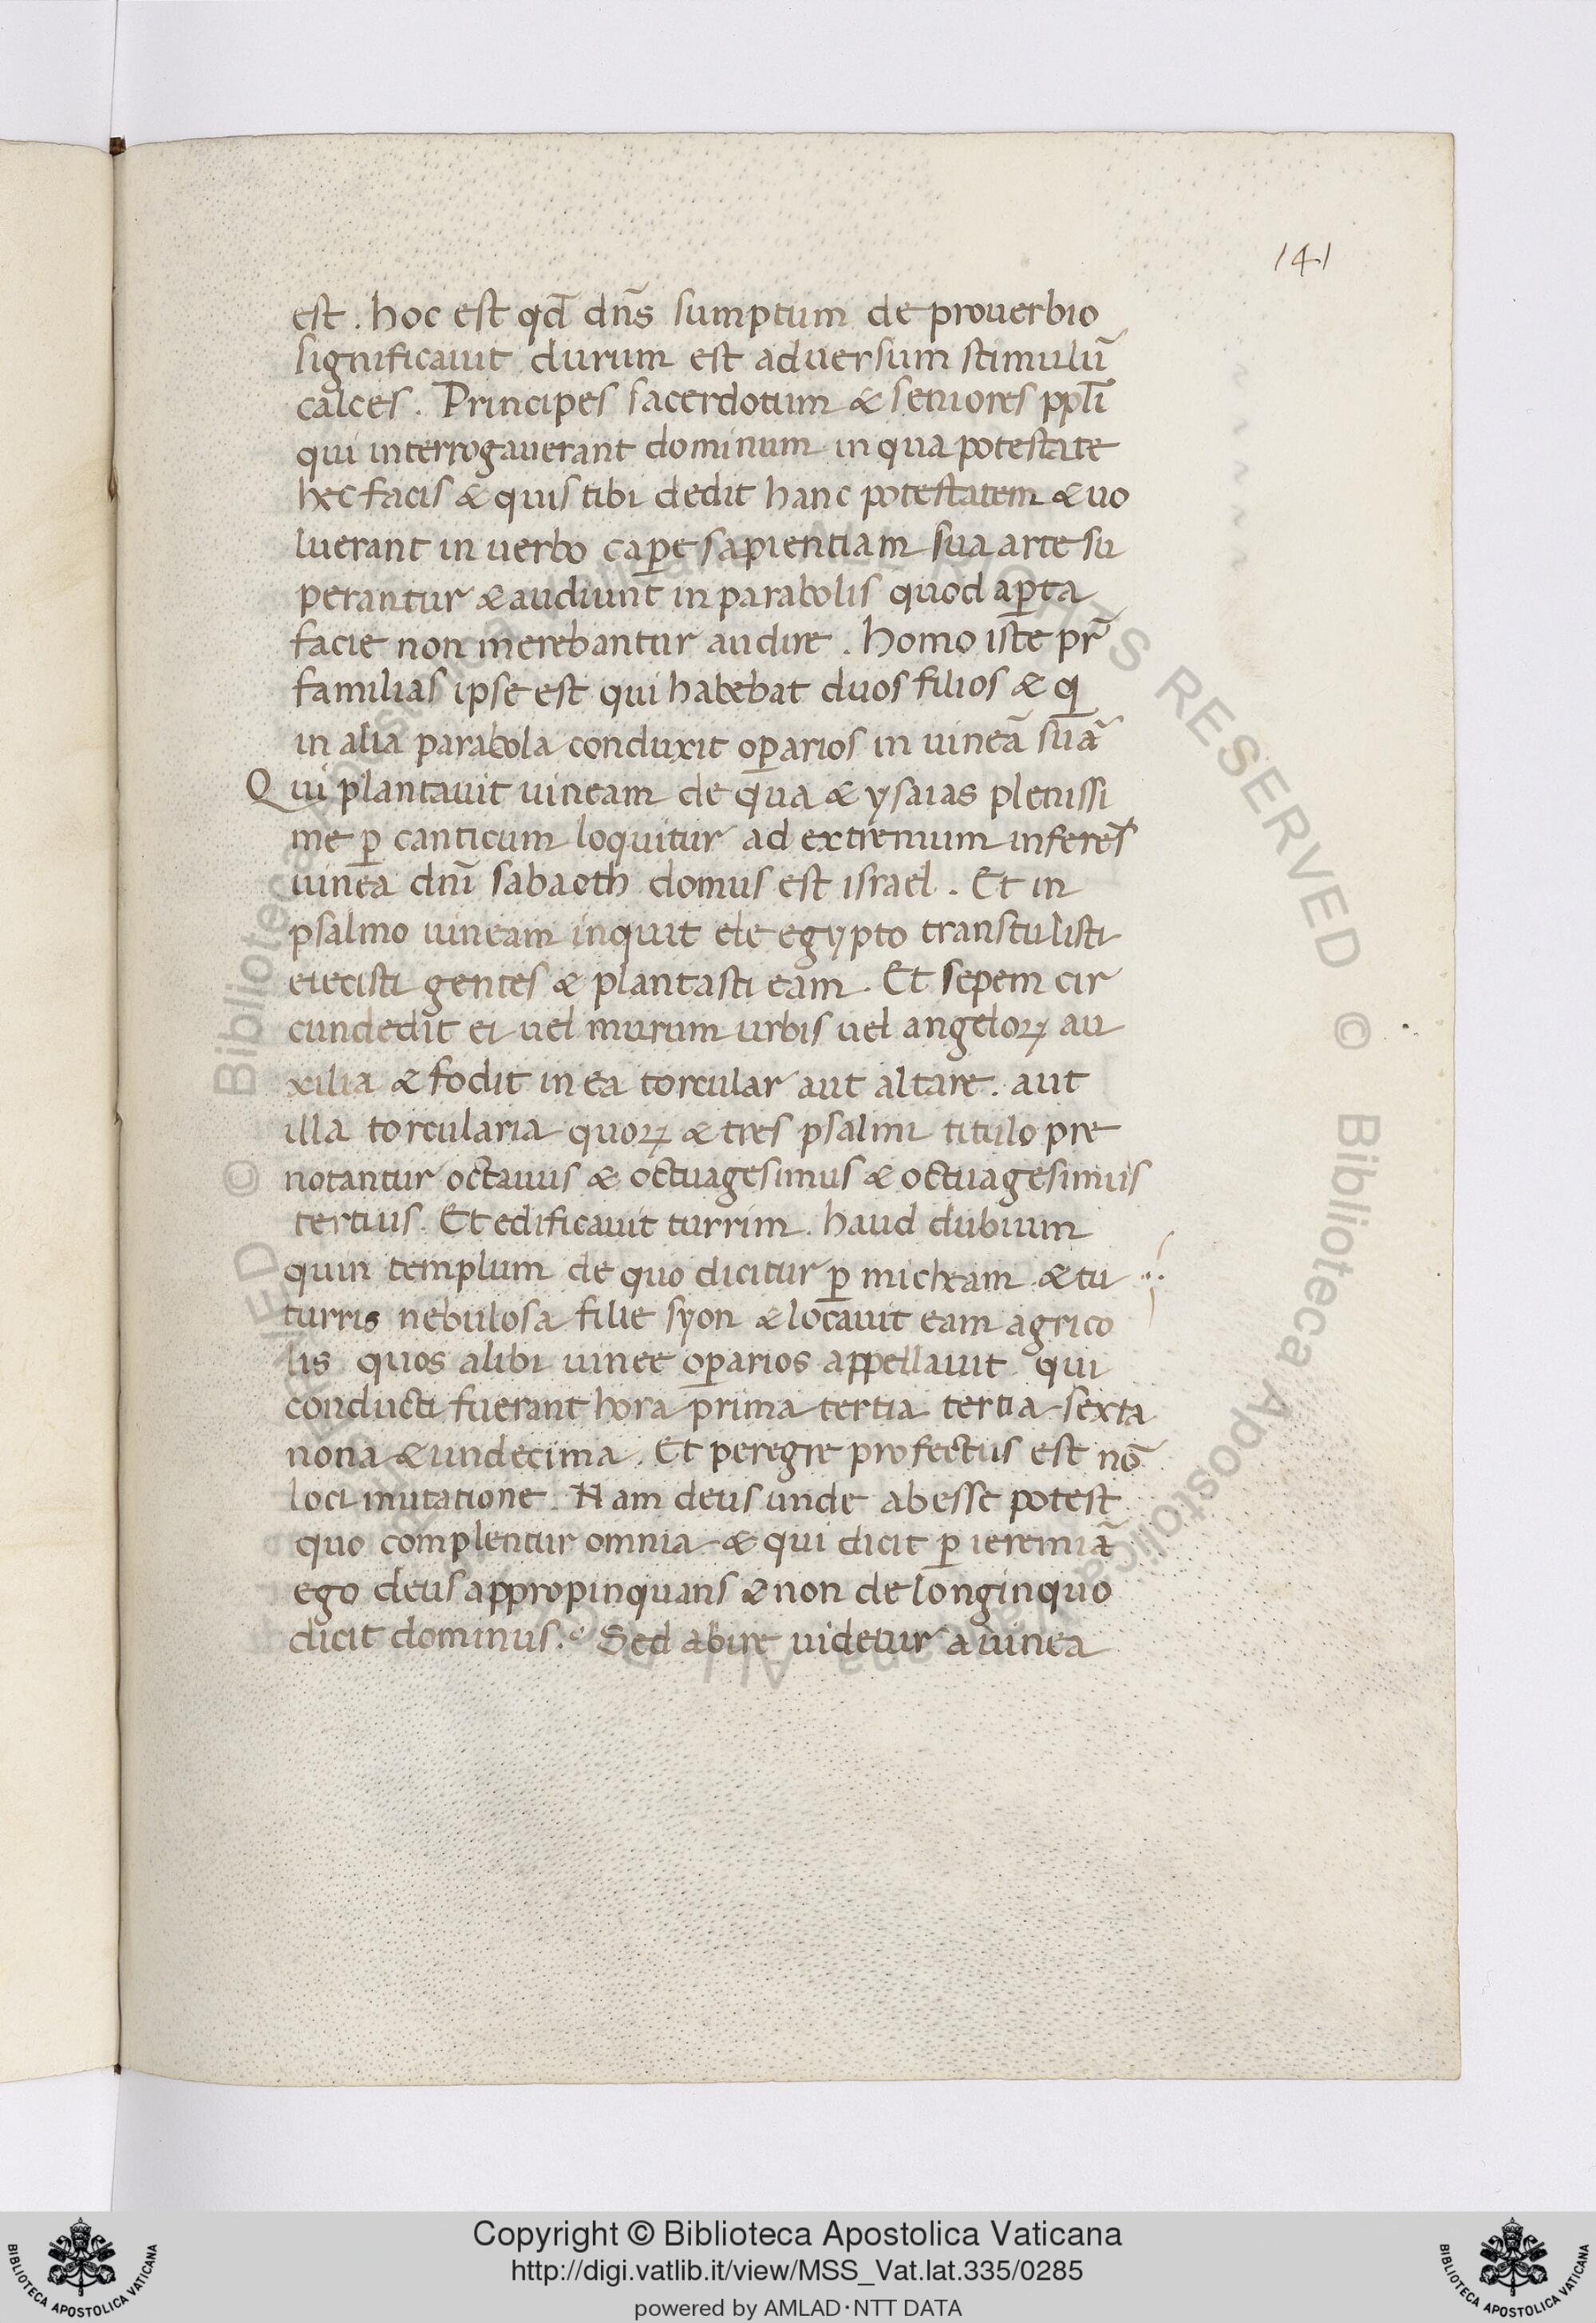 141
est. hoc est qd̄ dn̄s sumptum de prouerbio
significauit durum est aduersum stimulū
calces. Principes sacerdotum & seniores ppl̄i
qui interrogauerant dominum in qua potestate
hec facis & quis tibi dedit hanc potestatem & uo
luerant in uerbo cap̲e sapientiam sua arte su
perantur & audiunt in parabolis quod ap̲ta
facie non merebantur audire. homo iste pr̄
familias ipse est qui habebat duos filios & q̲
in alia parabola conduxit op̲arios in uineā suā
Qui plantauit uineam de qua & ysaias plenissi
me p̲ canticum loquitur ad extremum inferēs
uinea dn̄i sabaoth domus est israel. Et in
psalmo uineam inquit de egypto transtulisti
eiecisti gentes & plantasti eam. Et sepem cir
cundedit ei uel murum urbis uel angeloꝝ au
xilia & fodit in ea torcular aut altare. aut
illa torcularia quoꝝ & tres psalmi titulo pre
notantur octauus & octuagesimus & octuagesimus
tertius. Et edificauit turrim. haud dubium
quin templum de quo dicitur p̲ micheam & tu
turris nebulosa filie syon & locauit eam agrico
lis quos alibi uinee op̲arios appellauit qui
conducti fuerant hora prima tertia tertia sexta
nona & undecima. Et peregre profectus est nō
loci mutatione. Nam deus unde abesse potest
quo complentur omnia & qui dicit p̲ ieremiā
ego deus appropinquans & non de longinquo
dicit dominus. Sed abire uidetur a uinea
© Biblioteca Apostolica Vaticana ALL RIGHTS RESERVED © Biblioteca Apostolica Vaticana ALL RIGHTS RESERVED
Copyright © Biblioteca Apostolica Vaticana
http://digi.vatlib.it/view/MSS_Vat.lat.335/0285
powered by AMLAD·NTT DATA
BIBLIOTECA APOSTOLICA VATICANA
BIBLIOTECA APOSTOLICA VATICANA